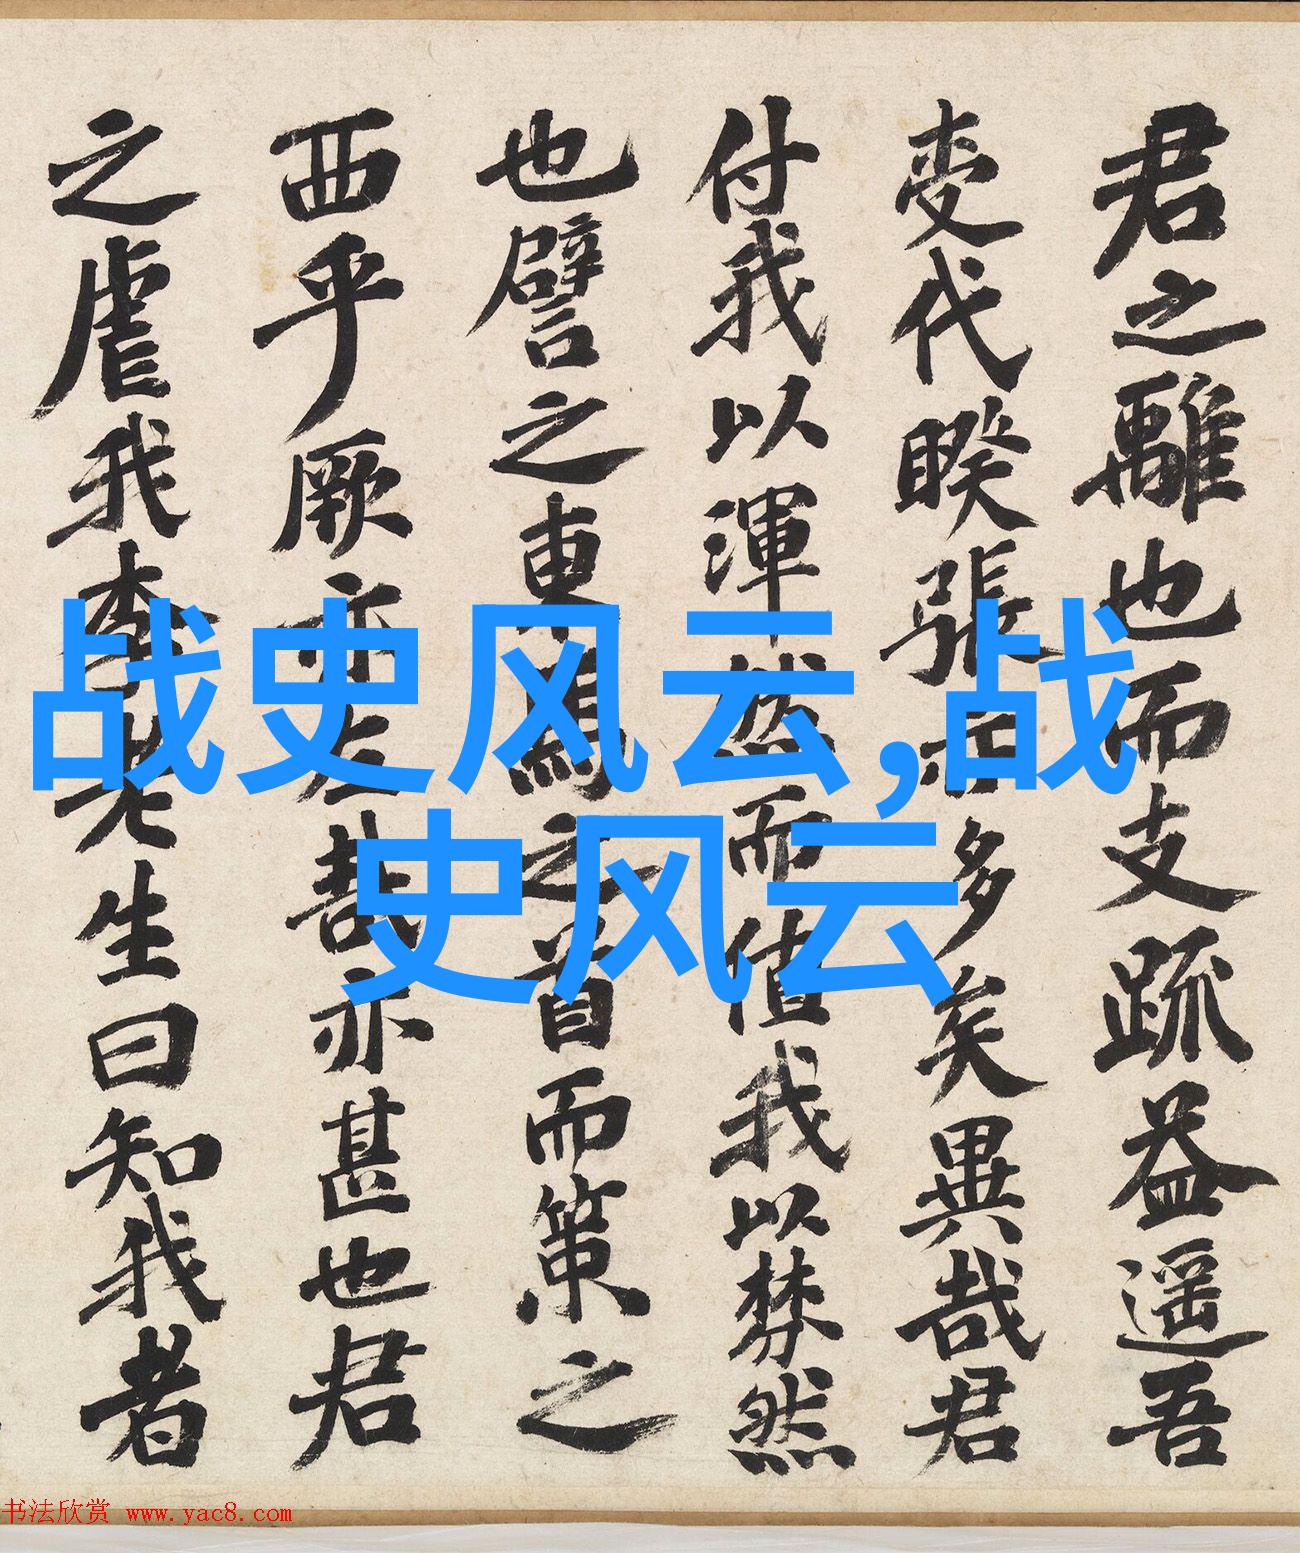 君之離也而支疏益遥吾
代睽張多矣異哉君
付我以渾然而值我以棼然
也譬之東馬之首而策之
西乎厥亦左哉亦甚也君
之虐我李老生曰知我者
战史风云,战
史风云
书法欣赏 www.yac8.com